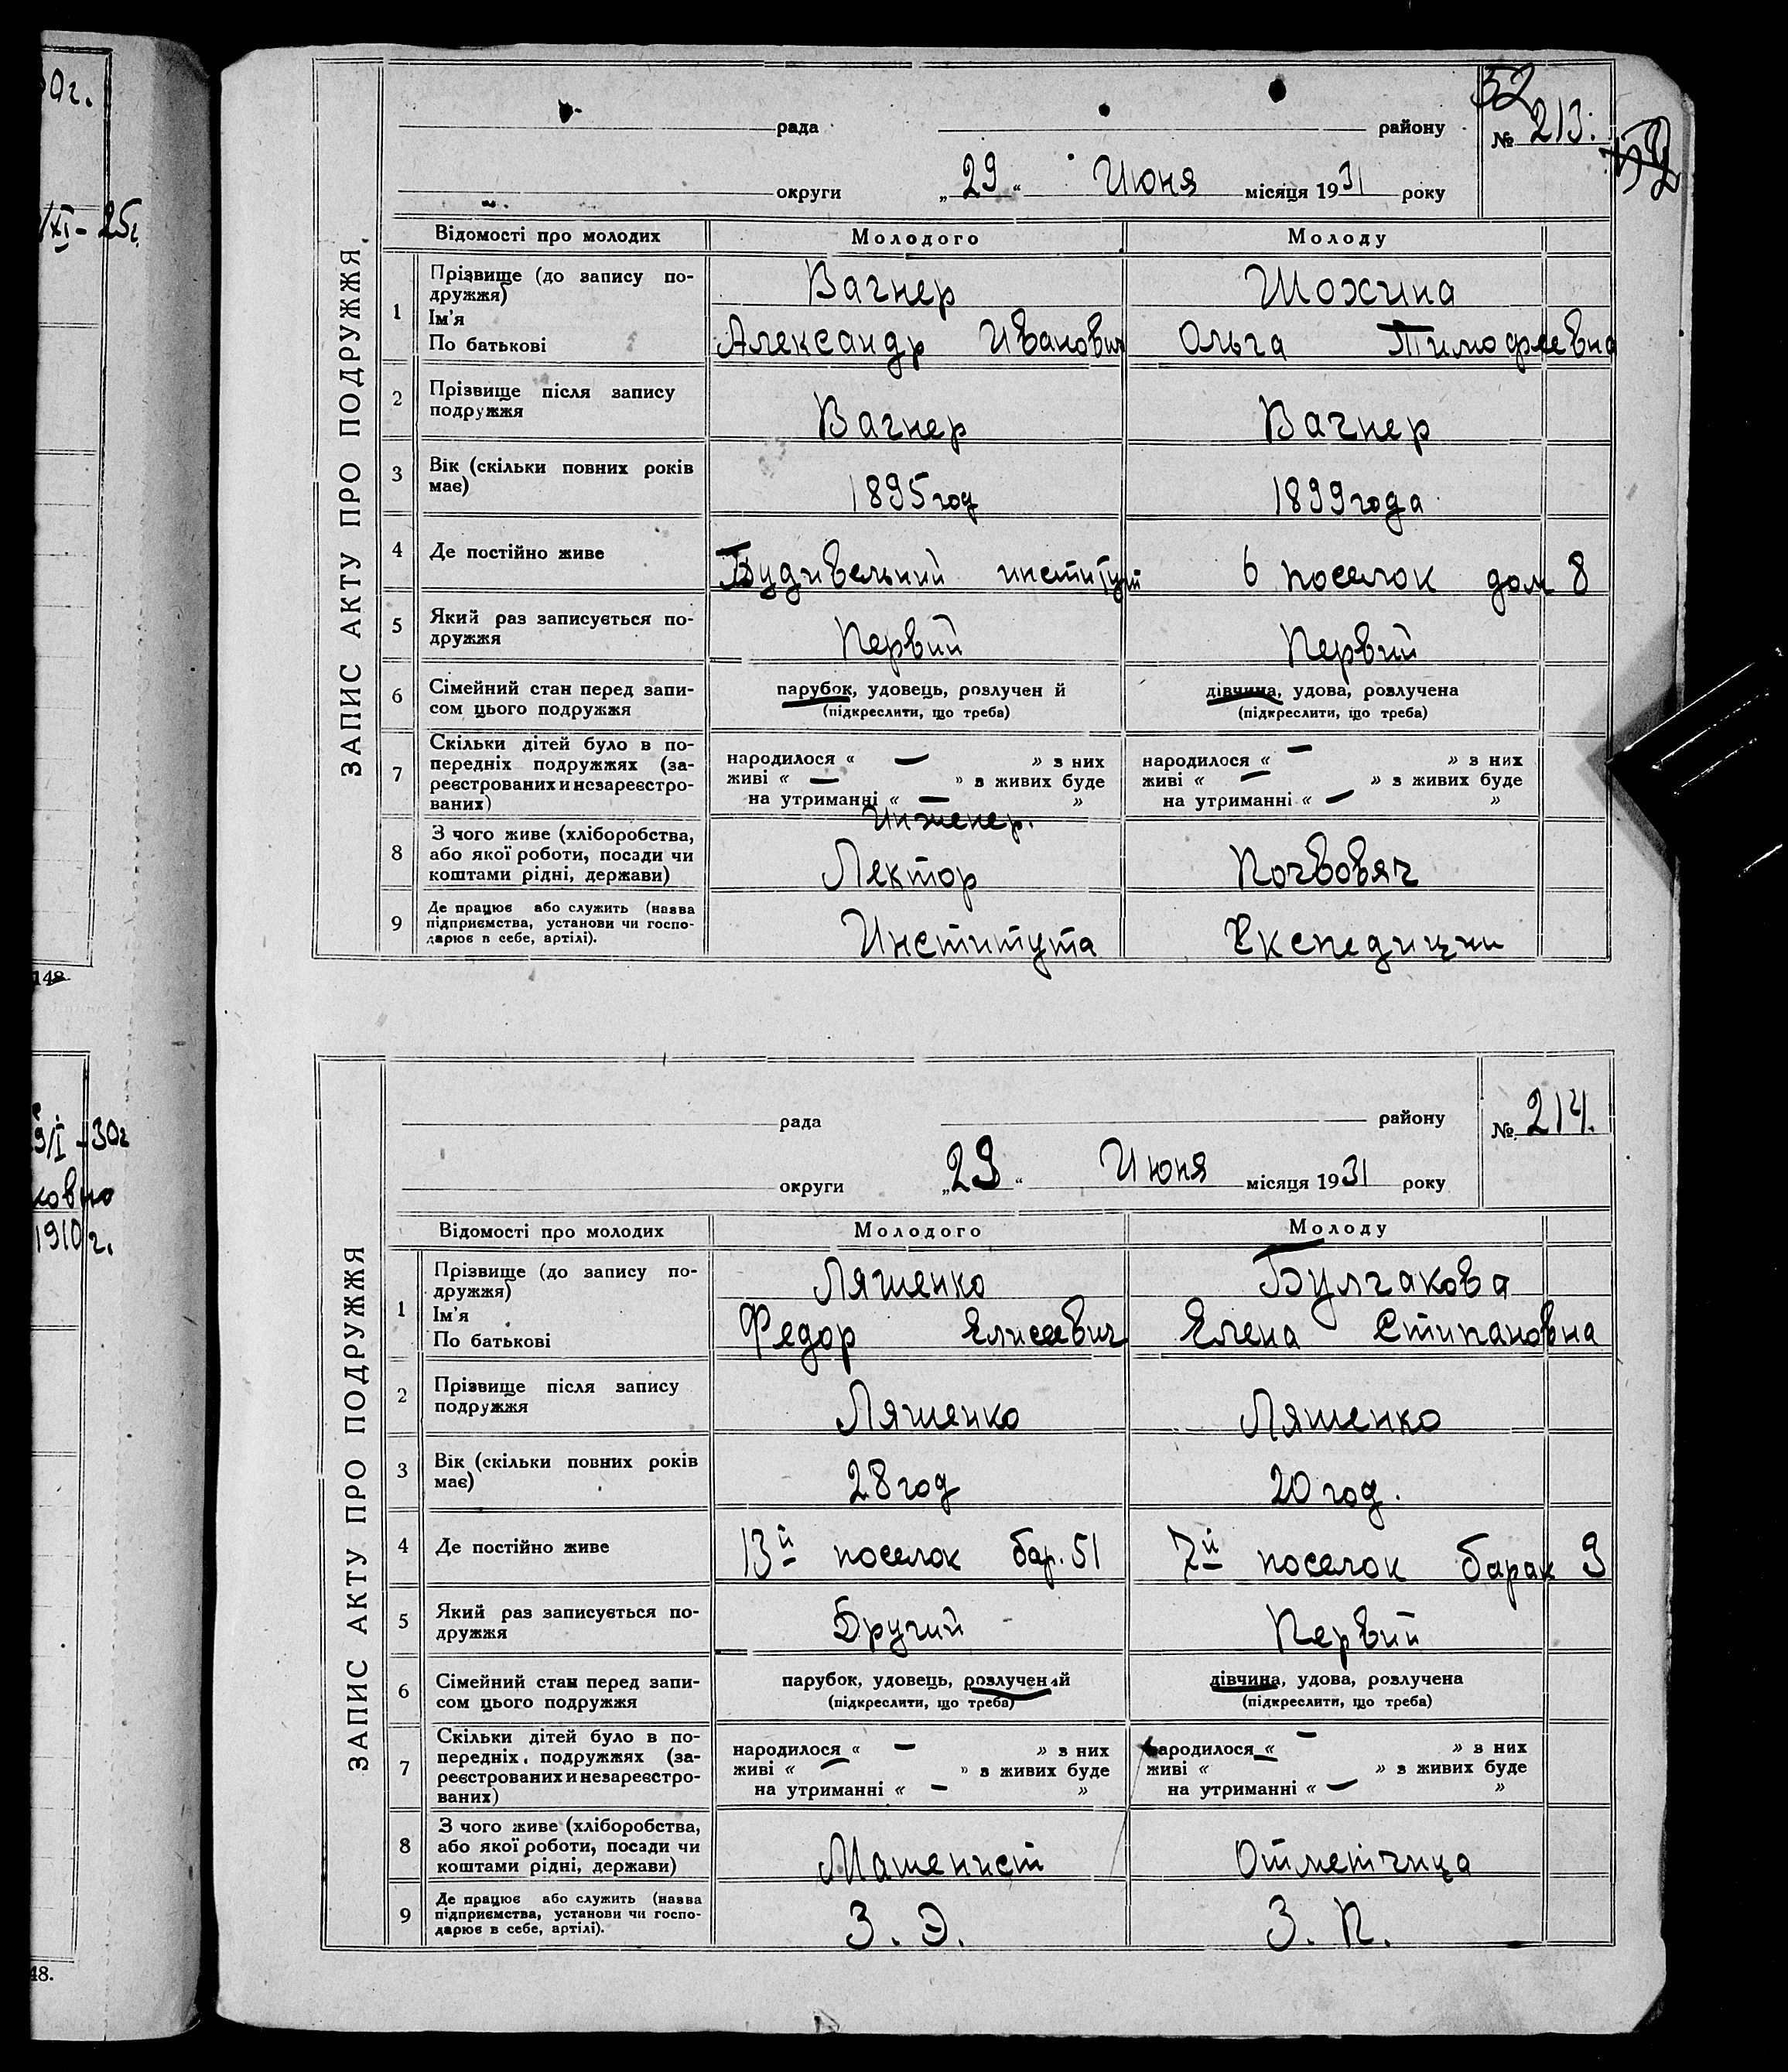 0г.
/XI - 25г.
148
9/I - 30г
ковно
1910г.
48.
52
рада району № 213.
52
округи „29“ Июня місяця 1931 року
ЗАПИС АКТУ ПРО ПОДРУЖЖЯ.
Відомості про молодих Молодого Молоду
1 Прізвище (до запису по-
дружжя) Вагнер Шохина
Ім'я
По батькові Александр Иванович Ольга Тимофеевна
2 Прізвище після запису
подружжя Вагнер Вагнер
3 Вік (скільки повних років
має) 1895 год 1899 года
4 Де постійно живе Будивельний институт 6 поселок дом 8
5 Який раз записується по-
дружжя Первий Первий
6 Сімейний стан перед запи- парубок, удовець, розлучен й дівчина, удова, розлучена
сом цього подружжя (підкреслити, що треба) (підкреслити, що треба)
7 Скільки дітей було в по-
передніх подружжях (за- народилося « — » з них народилося « — » з них
реєстрованих и незареєстро- живі « — » з живих буде живі « — » з живих буде
ваних) на утриманні « — » на утриманні « — »
Инженер.
8 З чого живе (хліборобства,
або якої роботи, посади чи
коштами рідні, держави) Лектор Почвовяг
9 Де працює або служить (назва
підприємства, установи чи госпо-
дарює в себе, артілі). Института Експедиции
рада району № 214.
округи „29“ Июня місяця 1931 року
ЗАПИС АКТУ ПРО ПОДРУЖЖЯ
Відомості про молодих Молодого Молоду
1 Прізвище (до запису по-
дружжя) Ляшенко Булгакова
Ім'я
По батькові Федор Елисеевич Елена Стипановна
2 Прізвище після запису
подружжя Ляшенко Ляшенко
3 Вік (скільки повних років
має) 28 год 20 год.
4 Де постійно живе 13й поселок бар. 51 7й поселок барак 9
5 Який раз записується по-
дружжя Другий Первий
6 Сімейний стан перед запи- парубок, удовець, розлучений дівчина, удова, розлучена
сом цього подружжя (підкреслити, що треба) (підкреслити, що треба)
7 Скільки дітей було в по-
передніх подружжях (за- народилося « — » з них народилося « — » з них
реєстрованих и незареєстро- живі « — » з живих буде живі « — » з живих буде
ваних) на утриманні « — » на утриманні « — »
8 З чого живе (хліборобства,
або якої роботи, посади чи
коштами рідні, держави) Машенист Отметчица
9 Де працює або служить (назва
підприємства, установи чи госпо-
дарює в себе, артілі). З. Э. З. П.